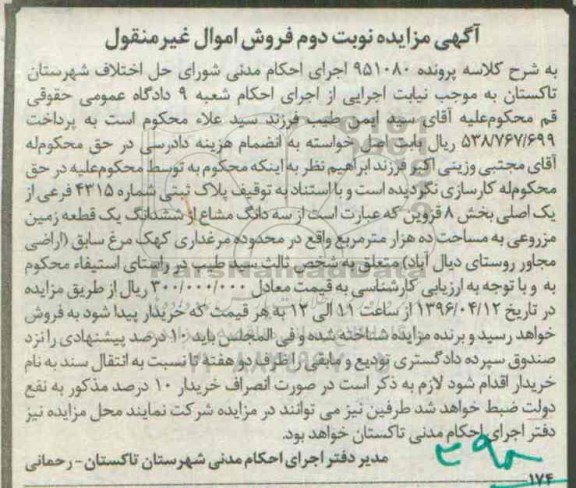 آگهی مزایده نوبت دوم فروش اموال غیرمنقول
به شرح کلاسه پرونده ۹۵۱۰۸۰ اجرای احکام مدنی شورای حل اختلاف شهرستان
تاکستان به موجب نیابت اجرایی از اجرای احکام شعبه ۹ دادگاه عمومی حقوقی
قم محکوم‌علیه آقای سید ایمن طیب فرزند سید علاء محکوم است به پرداخت
۵۳۸/۷۶۷/۶۹۹ ریال بابت اصل خواسته به انضمام هزینه دادرسی در حق محکوم‌له
آقای مجتبی وزینی اکبر فرزند ابراهیم نظر به اینکه محکوم به توسط محکوم‌علیه در حق
محکوم‌له کارسازی نگردیده است و با استناد به توقیف پلاک ثبتی شماره ۴۳۱۵ فرعی از
یک اصلی بخش ۸ قزوین که عبارت است از سه دانگ مشاع از ششدانگ یک قطعه زمین
مزروعی به مساحت ده هزار مترمربع واقع در محدوده مرغداری کهک مرغ سابق (اراضی
مجاور روستای دیال آباد) متعلق به شخص ثالث سید طیب در راستای استیفاء محکوم
به و با توجه به ارزیابی کارشناسی به قیمت معادل ۳۰۰/۰۰۰/۰۰۰ ریال از طریق مزایده
در تاریخ ۱۳۹۶/۰۴/۱۲ از ساعت ۱۱ الی ۱۲ به هر قیمت که خریدار پیدا شود به فروش
خواهد رسید و برنده مزایده شناخته شده و فی المجلس باید ۱۰ درصد پیشنهادی را نزد
صندوق سپرده دادگستری تودیع و مابقی را ظرف دو هفته تا نسبت به انتقال سند به نام
خریدار اقدام شود لازم به ذکر است در صورت انصراف خریدار ۱۰ درصد مذکور به نفع
دولت ضبط خواهد شد طرفین نیز می توانند در مزایده شرکت نمایند محل مزایده نیز
دفتر اجرای احکام مدنی تاکستان خواهد بود.
مدیر دفتر اجرای احکام مدنی شهرستان تاکستان - رحمانی
۱۷۴